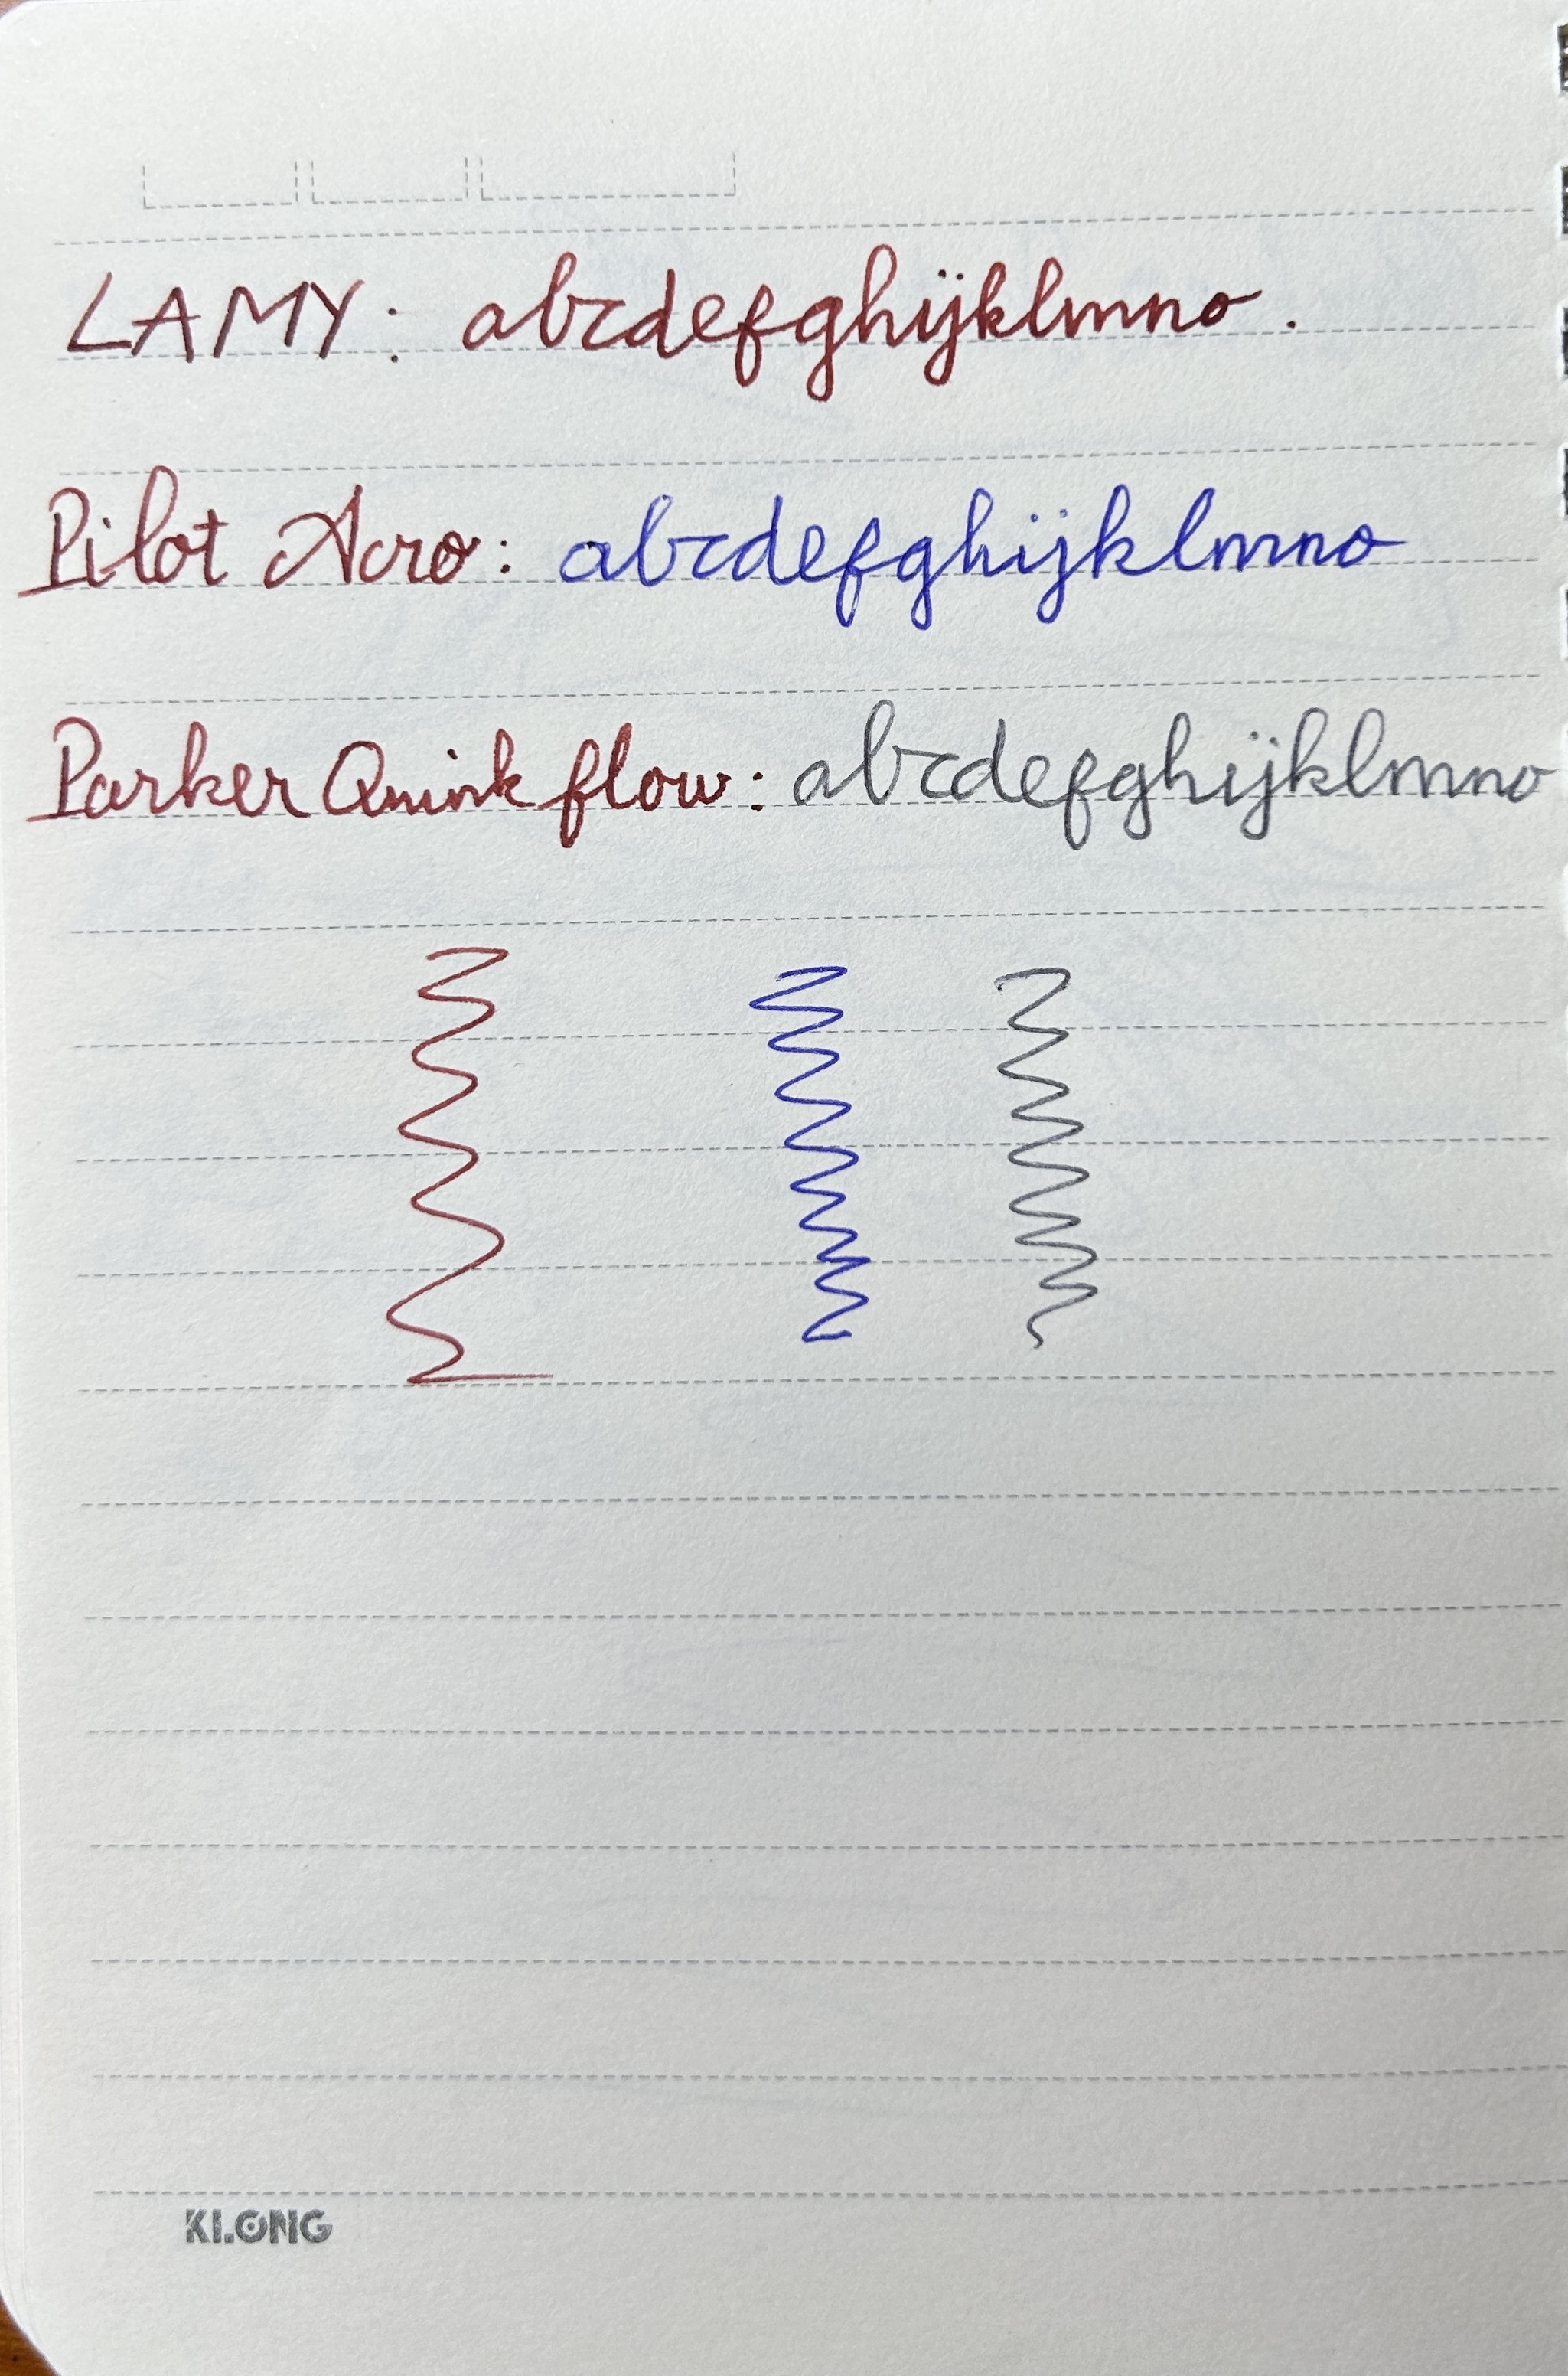 LAMY: abcdefghijklmno.
Pilot Acro: abcdefghijklmno
Parker Quink flow: abcdefghijklmno
KLONG